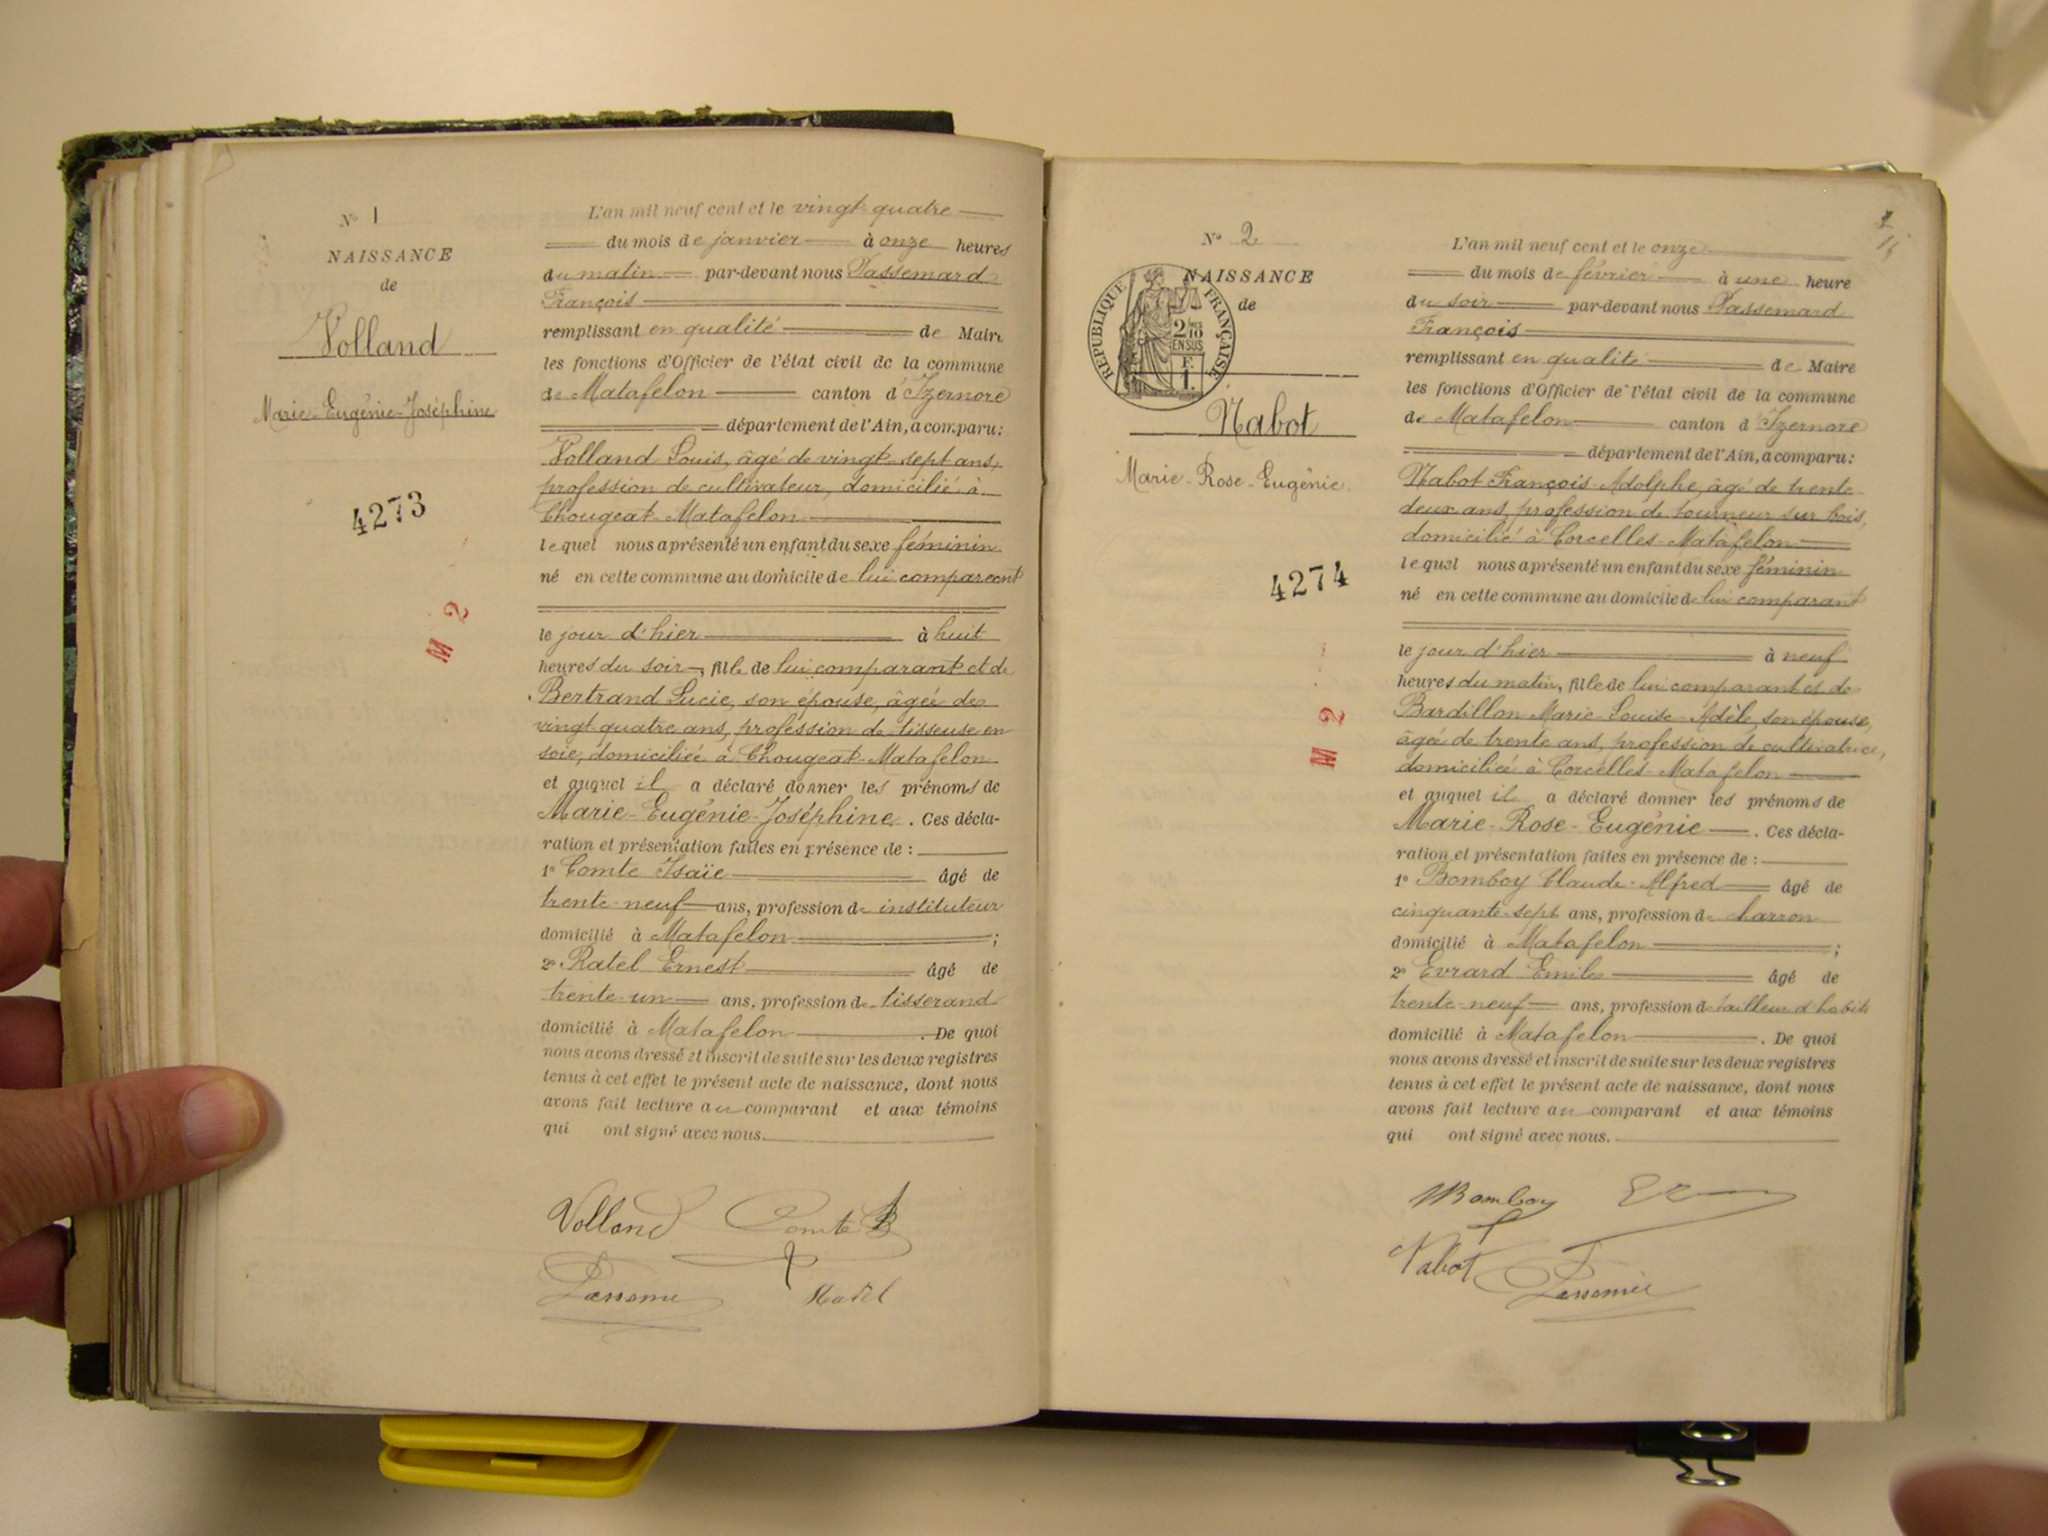 N° 1
NAISSANCE
de
Volland
Marie-Eugénie-Joséphine
4273
M 2
L'an mil neuf cent et le vingt quatre
du mois de janvier à onze heures
du matin par-devant nous Passemard
François
remplissant en qualité de Maire
les fonctions d'Officier de l'état civil de la commune
de Matafelon canton d'Izernore
département de l'Ain, a comparu:
Volland Louis, âgé de vingt-sept ans,
profession de cultivateur, domicilié à
Chougeat-Matafelon
lequel nous a présenté un enfant du sexe féminin
né en cette commune au domicile de lui comparant
le jour d'hier à huit
heures du soir, fille de lui comparant et de
Bertrand Lucie, son épouse, âgée de
vingt quatre ans, profession de tisseuse en
soie, domiciliée à Chougeat-Matafelon
et auquel il a déclaré donner les prénoms de
Marie-Eugénie-Joséphine. Ces décla-
ration et présentation faites en présence de :
1° Comte Isaïe âgé de
trente-neuf ans, profession de instituteur
domicilié à Matafelon ;
2° Ratel Ernest âgé de
trente-un ans, profession de tisserand
domicilié à Matafelon . De quoi
nous avons dressé et inscrit de suite sur les deux registres
tenus à cet effet le présent acte de naissance, dont nous
avons fait lecture au comparant et aux témoins
qui ont signé avec nous.
Volland Comte
Ratel
N° 2
NAISSANCE
de
RÉPUBLIQUE FRANÇAISE
2/10
EN SUS
F.
1.
Nabot
Marie-Rose-Eugénie
4274
M 2
L'an mil neuf cent et le onze
du mois de février à une heure
du soir par-devant nous Passemard
François
remplissant en qualité de Maire
les fonctions d'Officier de l'état civil de la commune
de Matafelon canton d'Izernore
département de l'Ain, a comparu:
Nabot François-Adolphe, âgé de trente-
deux ans, profession de tourneur sur bois,
domicilié à Corcelles-Matafelon
lequel nous a présenté un enfant du sexe féminin
né en cette commune au domicile de lui comparant
le jour d'hier à neuf
heures du matin, fille de lui comparant et de
Bardillon Marie-Louise-Adèle, son épouse,
âgée de trente ans, profession de cultivatrice,
domiciliée à Corcelles-Matafelon
et auquel il a déclaré donner les prénoms de
Marie-Rose-Eugénie . Ces décla-
ration et présentation faites en présence de :
1° Bomboy Claude-Alfred âgé de
cinquante-sept ans, profession de charron
domicilié à Matafelon ;
2° Evrard Emile âgé de
trente-neuf ans, profession de tailleur d'habits
domicilié à Matafelon . De quoi
nous avons dressé et inscrit de suite sur les deux registres
tenus à cet effet le présent acte de naissance, dont nous
avons fait lecture au comparant et aux témoins
qui ont signé avec nous.
Bomboy
Nabot